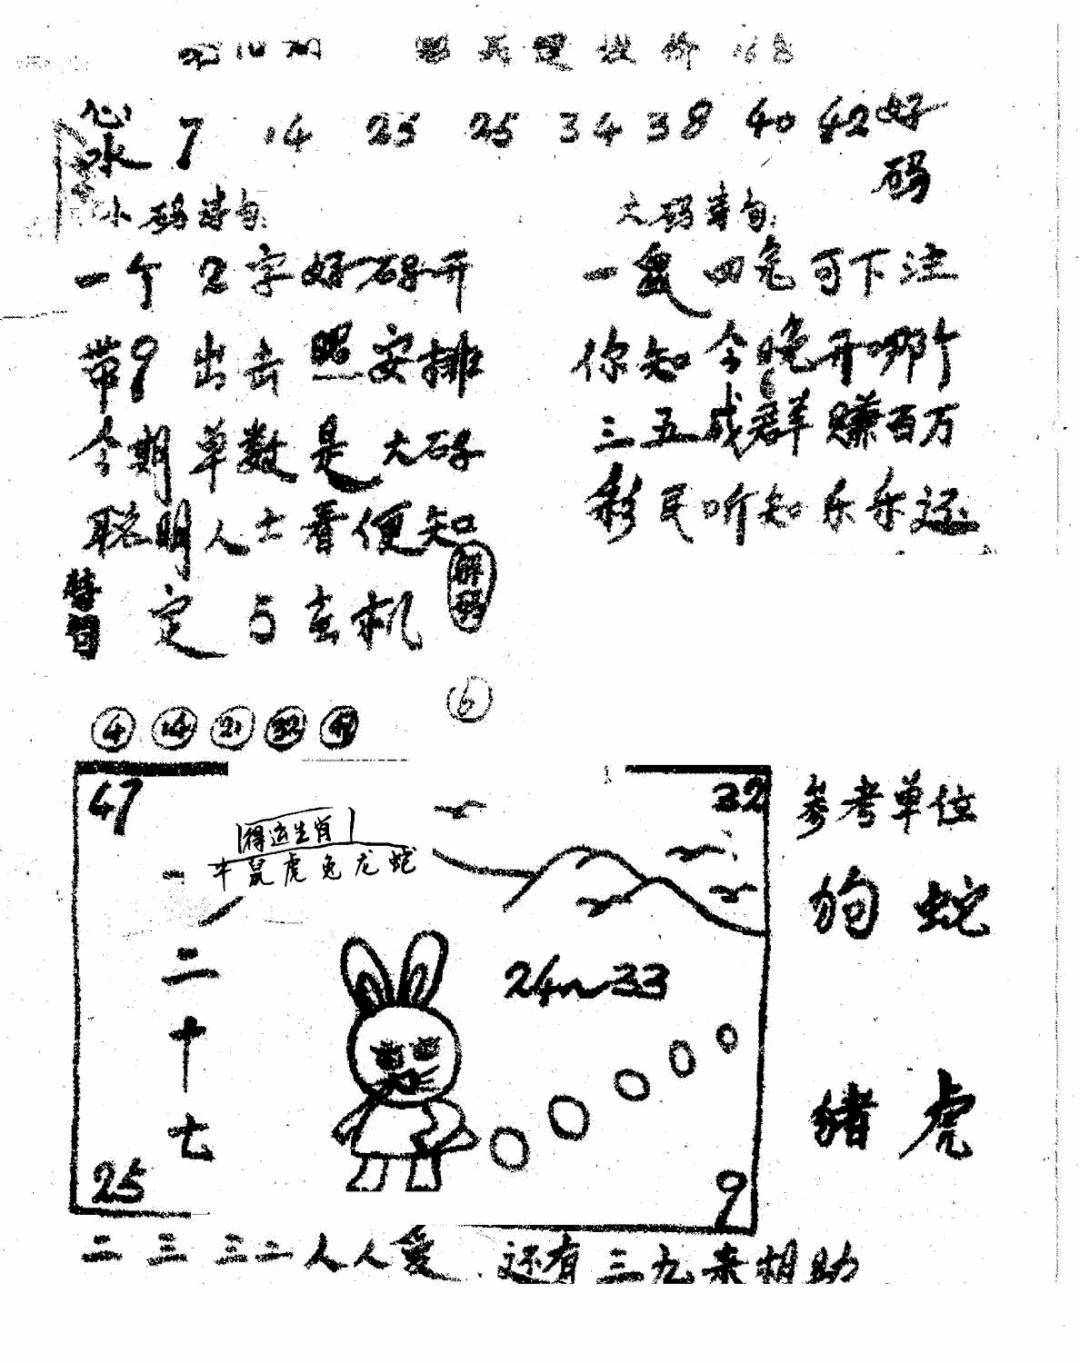 心水 7 14 25 25 34 38 40 42 好码
小码诗句:
一个2字好码开
带9出击照安排
今期单数是大码
聪明人士看便知
定 与玄机
解码
大码诗句:
一盘四兔可下注
你知今晚开哪个
三五成群赚百万
彩民听知乐乐还
6
4 14 21 32
47
32
得运生肖
牛鼠虎兔龙蛇
一
二
十
七
24~33
25
9
参考单位
狗 蛇
猪 虎
二三三二人人爱 还有三九来相助